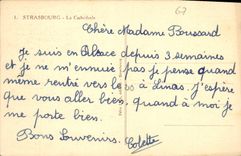 67
1. STRASBOURG - La Cathédrale
Chère Madame Poussard
Je suis en Alsace depuis 3 semaines
et je ne m'ennuie pas je pense quand
même rentré vers le 20 à Linas. J'espère
que vous aller bien. quand à moi je
me porte bien.
Bons Souvenirs. Colette